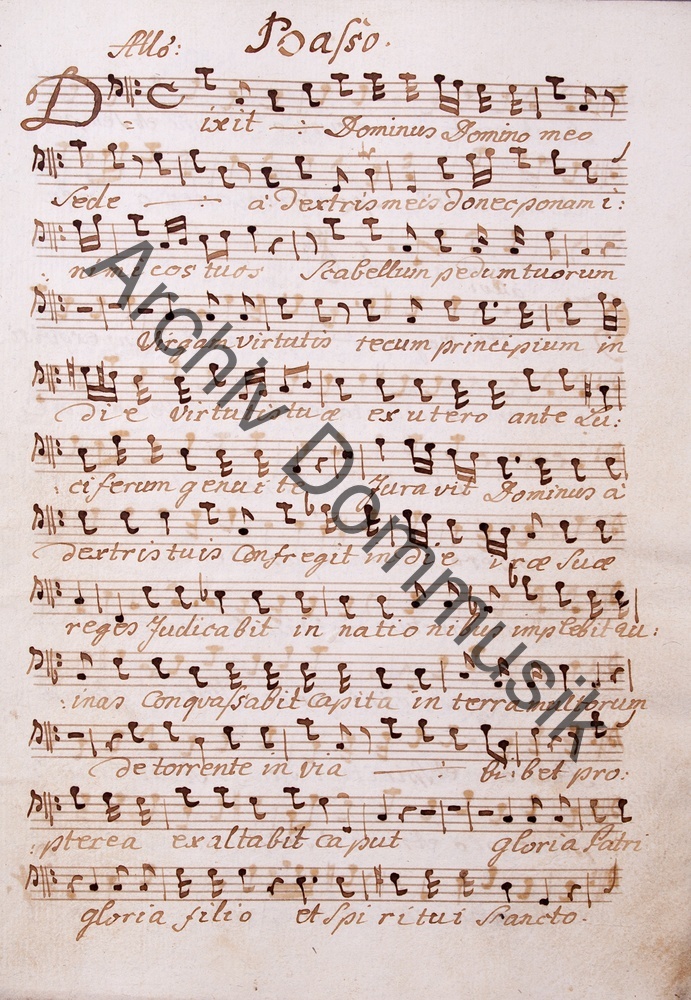 Basso.
Allo:
Dixit Dominus Domino meo
Sede a dextris meis donec ponam i:
:nimicos tuos Scabellum pedum tuorum
Virgam virtutis tecum principium in
die virtutis tuæ ex utero ante Lu:
:ciferum genui te Juravit Dominus à
dextris tuis Confregit in die iræ suæ
reges Judicabit in nationibus implebit Ru:
:inas Conquassabit Capita in terra multorum
de torrente in via bi:bet pro:
:pterea exaltabit caput gloria Patri
gloria filio et Spiritui Sancto.
Archiv Dommusik